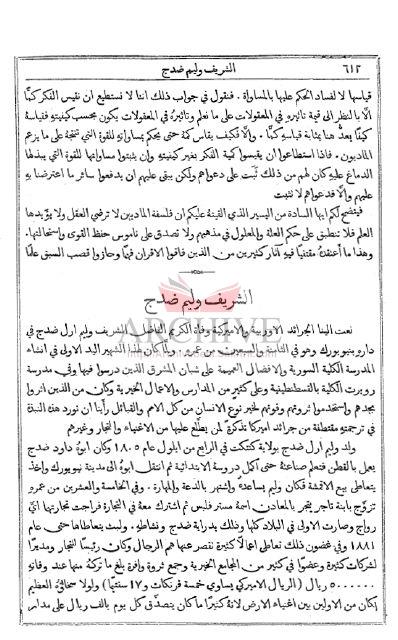 ٦١٢ الشريف وليم ضدج
قياسها لا لفساد الحكم عليها بالمساواة. فنقول في جواب ذلك اننا لا نستطيع ان نقيس الفكر كمًّا
الّا بالنظر الى قيمة تاثيره في المعقولات على ما نعلم وتاثيره في المعقولات يكون بحسب كيفيتهِ فقياسهُ
كمًّا يعدُّ هنا بمثابة قياسهِ كيفًا. والّا فكيف يقاس كمهُ حتى يحكم بمساواتهِ للقوة التي تنتجهُ على ما يزعم
الماديون. فاذا استطاعوا ان يقيسوا كمية الفكر بغير كيفيتهِ وان يثبتوا مساواتها للقوة التي يبذلها
الدماغ عليهِ كان لهم من ذلك ثبت على دعواهم ولكن يبقى عليهم ان يدفعوا سائر ما اعترضنا بهِ
عليهم والّا فدعواهم لا تثبت
فيتضح لكم ايها السادة من اليسير الذي القيتهُ عليكم ان فلسفة الماديين لا ترضي العقل ولا يؤيدها
العلم فلا تنطبق على حكم العلة والمعلول في مذهبهم ولا تصدق على ناموس حفظ القوى واستحالتها.
وهذا ما أعتقدهُ مقتفيًا فيهِ آثار كثيرين من الذين فاقوا الاقران فهمًا وحازوا قصب السبق علمًا
الشريف وليم ضدج
نعت الينا الجرائد الاوربية والاميركية وفاة الكريم الفاضل الشريف وليم ارل ضدج في
داره بنيويورك وهو في الثامنة والسبعين من عمره. ولما كان لهذا الشهير اليد الاولى في انشاء
المدرسة الكلية السورية والافضال العميمة على شبان المشرق الذين درسوا فيها وفي مدرسة
روبرت الكلية بالقسطنطينية وعلى كثير من المدارس والاعمال الخيرية وكان من الذين اثروا
بجدهم واستخدموا ثروتهم وقوتهم لخير نوع الانسان من كل الامم والقبائل رأينا ان نورد هذه النبذة
في ترجمتهِ مقتطفة من جرائد اميركا تذكرة لمن يطّلع عليها من الاغنياء والتجار وغيرهم
ولد وليم ارل ضدج بولاية كنتكت في الرابع من ايلول عام ١٨٠٥ وكان ابوهُ داود ضدج
يعمل بالقطن فتعلم صناعتهُ حتى اكمل دروسهُ الابتدائية ثم انتقل ابوهُ الى مدينة نيويورك واخذ
يتعاطى بيع الاقمشة فكان وليم يساعدهُ واشتهر بالدعة والمهارة. وفي الخامسة والعشرين من عمره
تزوّج بابنة تاجر يتجر بالمعادن اسمهُ مستر فلبس ثم اشترك معهُ في التجارة فراجت تجارتها ايّ
رواج وصارت الاولى في البلاد كلها وذلك بدراية ضدج ونشاطهِ. ولبث يتعاطاها حتى عام
١٨٨١ وفي غضون ذلك تعاطى اعمالًا كثيرة تقصر عنها همم الرجال وكان رئيسًا للتجار ومديرًا
لشركات كثيرة وعضوًا في كثير من المجامع الخيرية وجمع ثروة وافرة بلغ ما تركهُ منها عند وفاتهِ
٥٠٠٠٠٠٠ ريال (الريال الاميركي يساوي خمسة فرنكات و١٧ سنتيمًا) ولولا سخاؤهُ العظيم
لكان من الاولين بين اغنياء الارض لانهُ كثيرًا ما كان يتصدّق كل يوم بالف ريال على مدارس
ARCHIVE